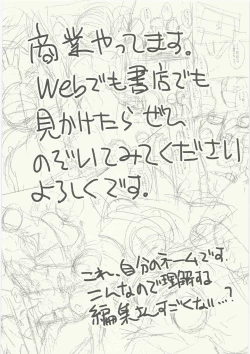 商業やってます。
Webでも書店でも
見かけたら ぜひ
のぞいてみてください
よろしくです。
これ、自分のネームです.
こんなので理解する
編集さんすごくない…?